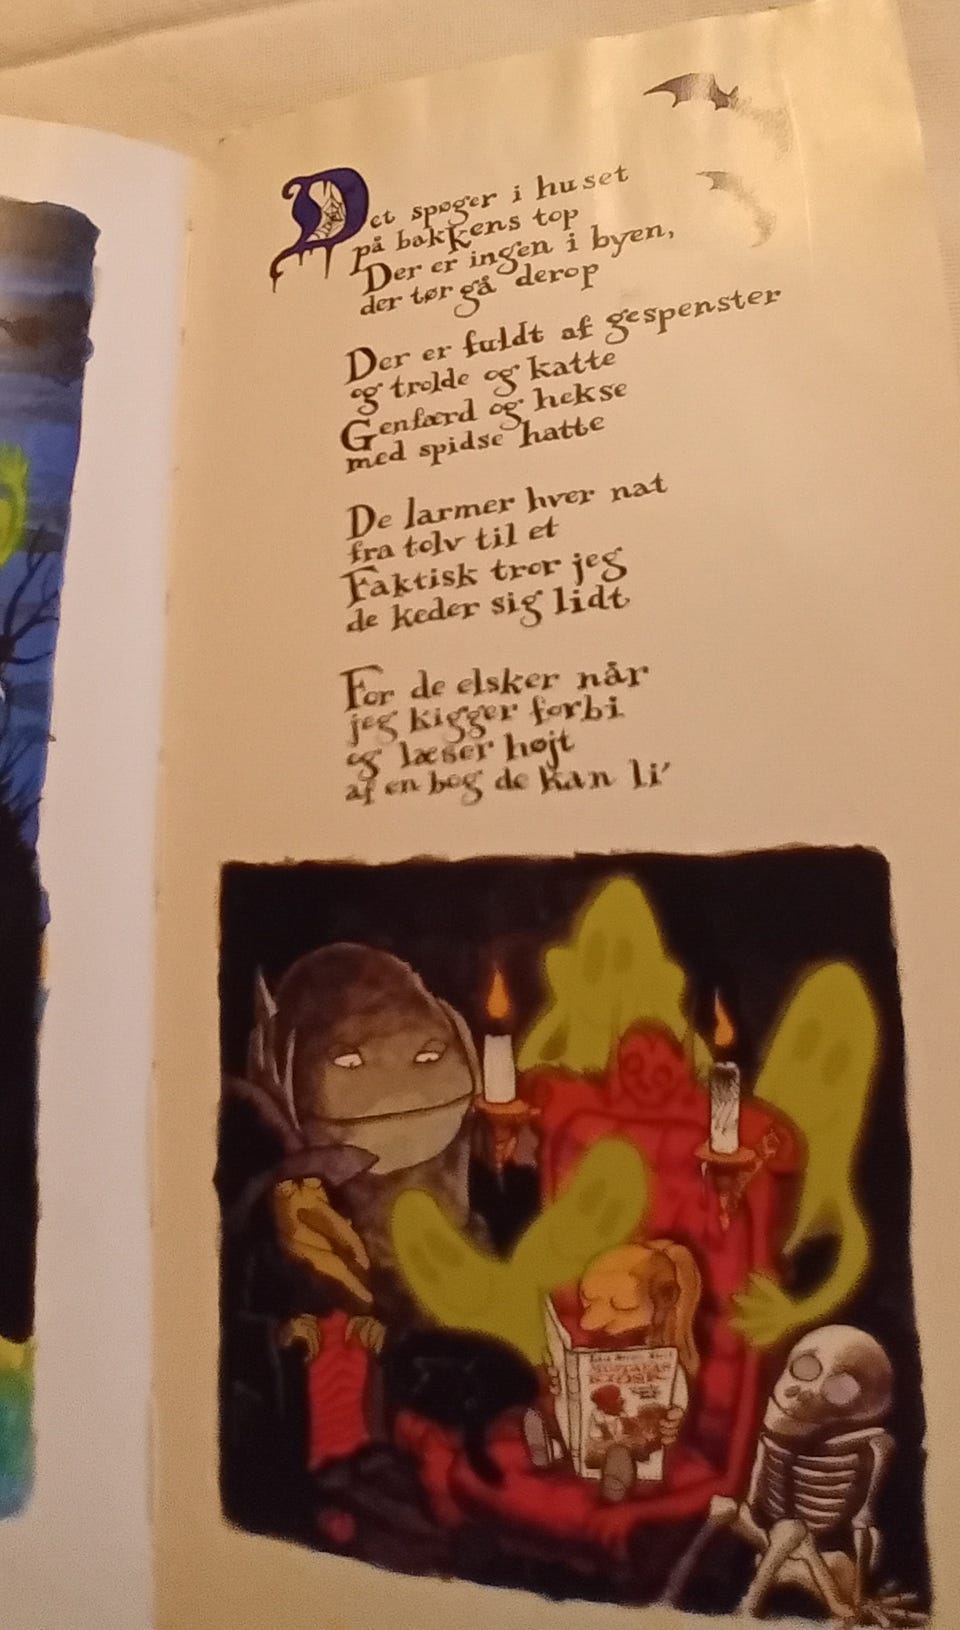 Det spøger i huset
på bakkens top
Der er ingen i byen,
der tør gå derop
Der er fuldt af gespenster
og trolde og katte
Genfærd og hekse
med spidse hatte
De larmer hver nat
fra tolv til et
Faktisk tror jeg
de keder sig lidt
For de elsker når
jeg kigger forbi
og læser højt
af en bog de kan li'
MUSTAFAS
KIOSK